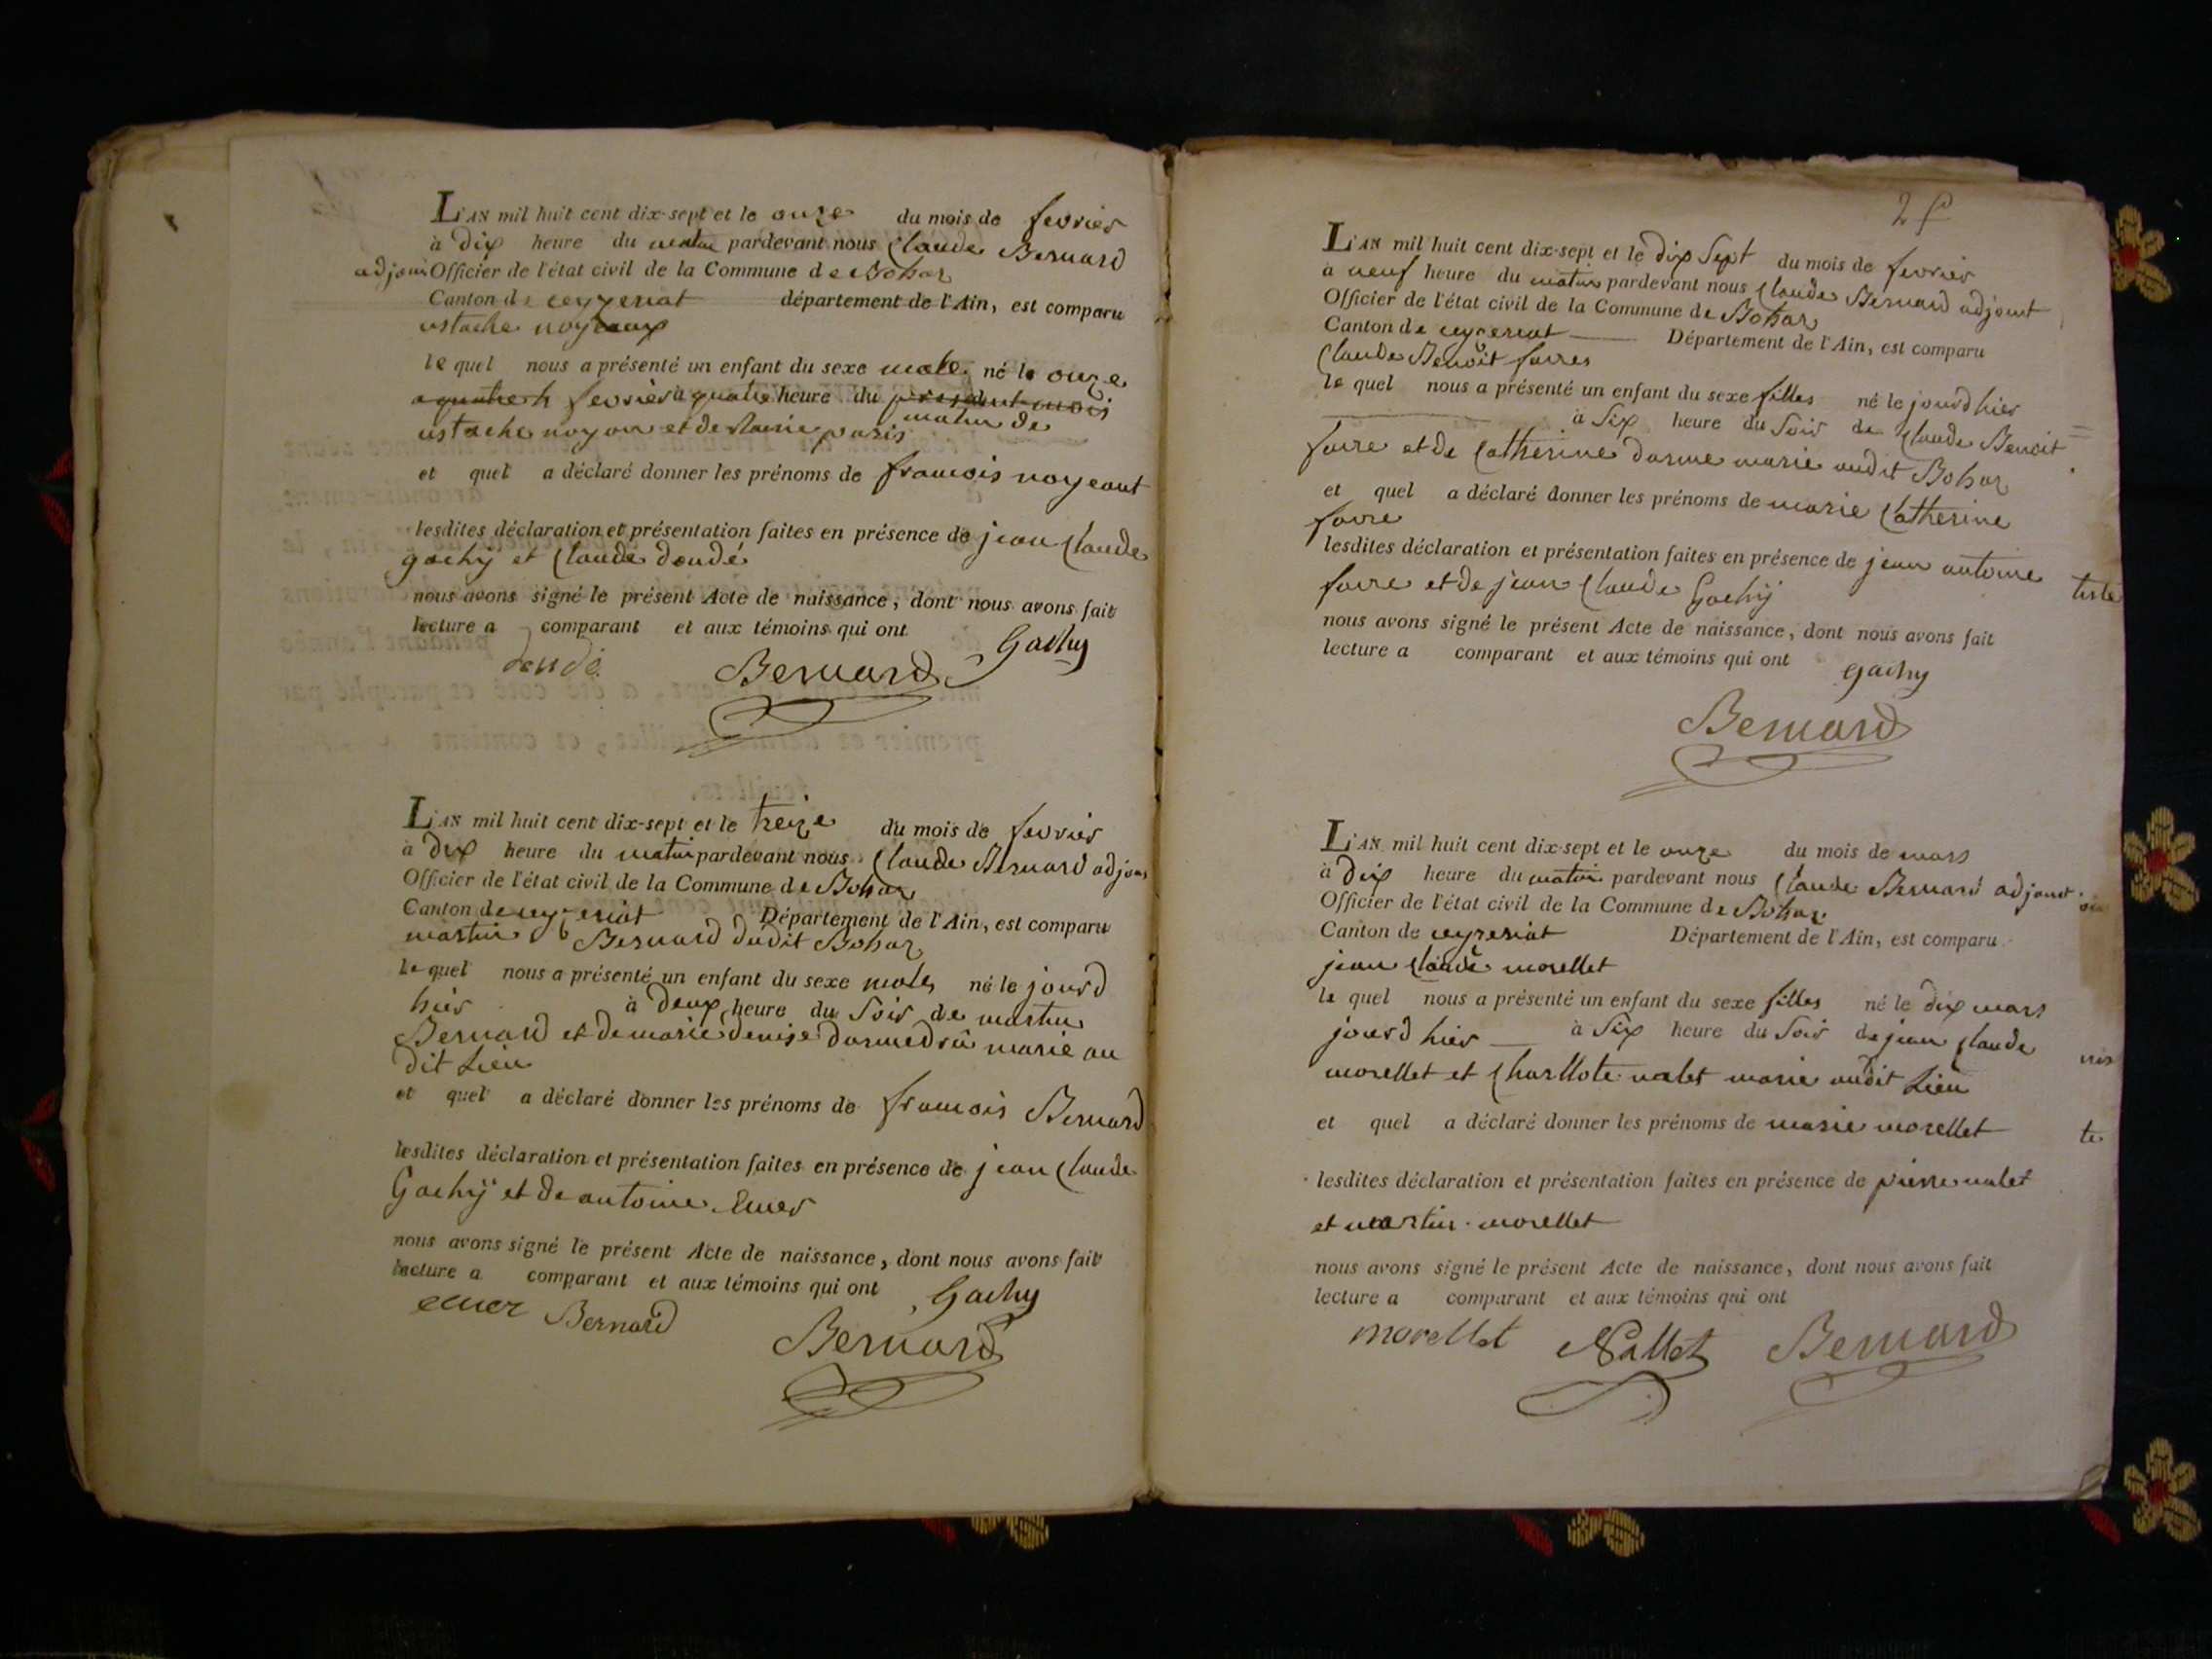 L'AN mil huit cent dix-sept et le onze du mois de fevrier
à dix heure du matin pardevant nous Claude Bernard
adjoint Officier de l'état civil de la Commune de Bohaz
Canton de ceyzeriat département de l'Ain, est comparu
ustache noyeaux
le quel nous a présenté un enfant du sexe male né le onze
fevrier a quatre heure du present mois
matin de
ustache noyon et de Marie paris
et quel a déclaré donner les prénoms de francois noyeant
lesdites déclaration et présentation faites en présence de jean Claude
gachy et Claude doudé
nous avons signé le présent Acte de naissance, dont nous avons fait
lecture a comparant et aux témoins qui ont
doudé Bernard Gachy
L'AN mil huit cent dix-sept et le treize du mois de fevrier
à dix heure du matin pardevant nous Claude Bernard adjoint
Officier de l'état civil de la Commune de Bohaz
Canton de ceyzeriat Département de l'Ain, est comparu
martin Bernard dudit Bohaz
le quel nous a présenté un enfant du sexe male né le jourd
hier à deux heure du Soir de martin
Bernard et de marie denise marie au
dit Lieu
et quel a déclaré donner les prénoms de francois Bernard
lesdites déclaration et présentation faites en présence de jean Claude
Gachy et de antoine
nous avons signé le présent Acte de naissance, dont nous avons fait
lecture a comparant et aux témoins qui ont
Gachy
Bernard Bernard
2 f
L'AN mil huit cent dix-sept et le dix Sept du mois de fevrier
à neuf heure du matin pardevant nous Claude Bernard adjoint
Officier de l'état civil de la Commune de Bohaz
Canton de ceyzeriat Département de l'Ain, est comparu
Claude Benoit favre
le quel nous a présenté un enfant du sexe fille né le jourd hier
à Six heure du Soir de Claude Benoit
favre et de Catherine darme marie audit Bohaz
et quel a déclaré donner les prénoms de marie Catherine
favre
lesdites déclaration et présentation faites en présence de jean antoine
favre et de jean Claude Gachy
nous avons signé le présent Acte de naissance, dont nous avons fait
lecture a comparant et aux témoins qui ont
Gachy
Bernard
L'AN mil huit cent dix-sept et le onze du mois de mars
à dix heure du matin pardevant nous Claude Bernard adjoint
Officier de l'état civil de la Commune de Bohaz
Canton de ceyzeriat Département de l'Ain, est comparu
jean Claude morellet
le quel nous a présenté un enfant du sexe fille né le dix mars
jourd hier à Six heure du Soir de jean Claude
morellet et Charllote nalet marie audit Lieu
et quel a déclaré donner les prénoms de marie morellet
lesdites déclaration et présentation faites en présence de pierre nalet
et martin morellet
nous avons signé le présent Acte de naissance, dont nous avons fait
lecture a comparant et aux témoins qui ont
morellet Nallet Bernard